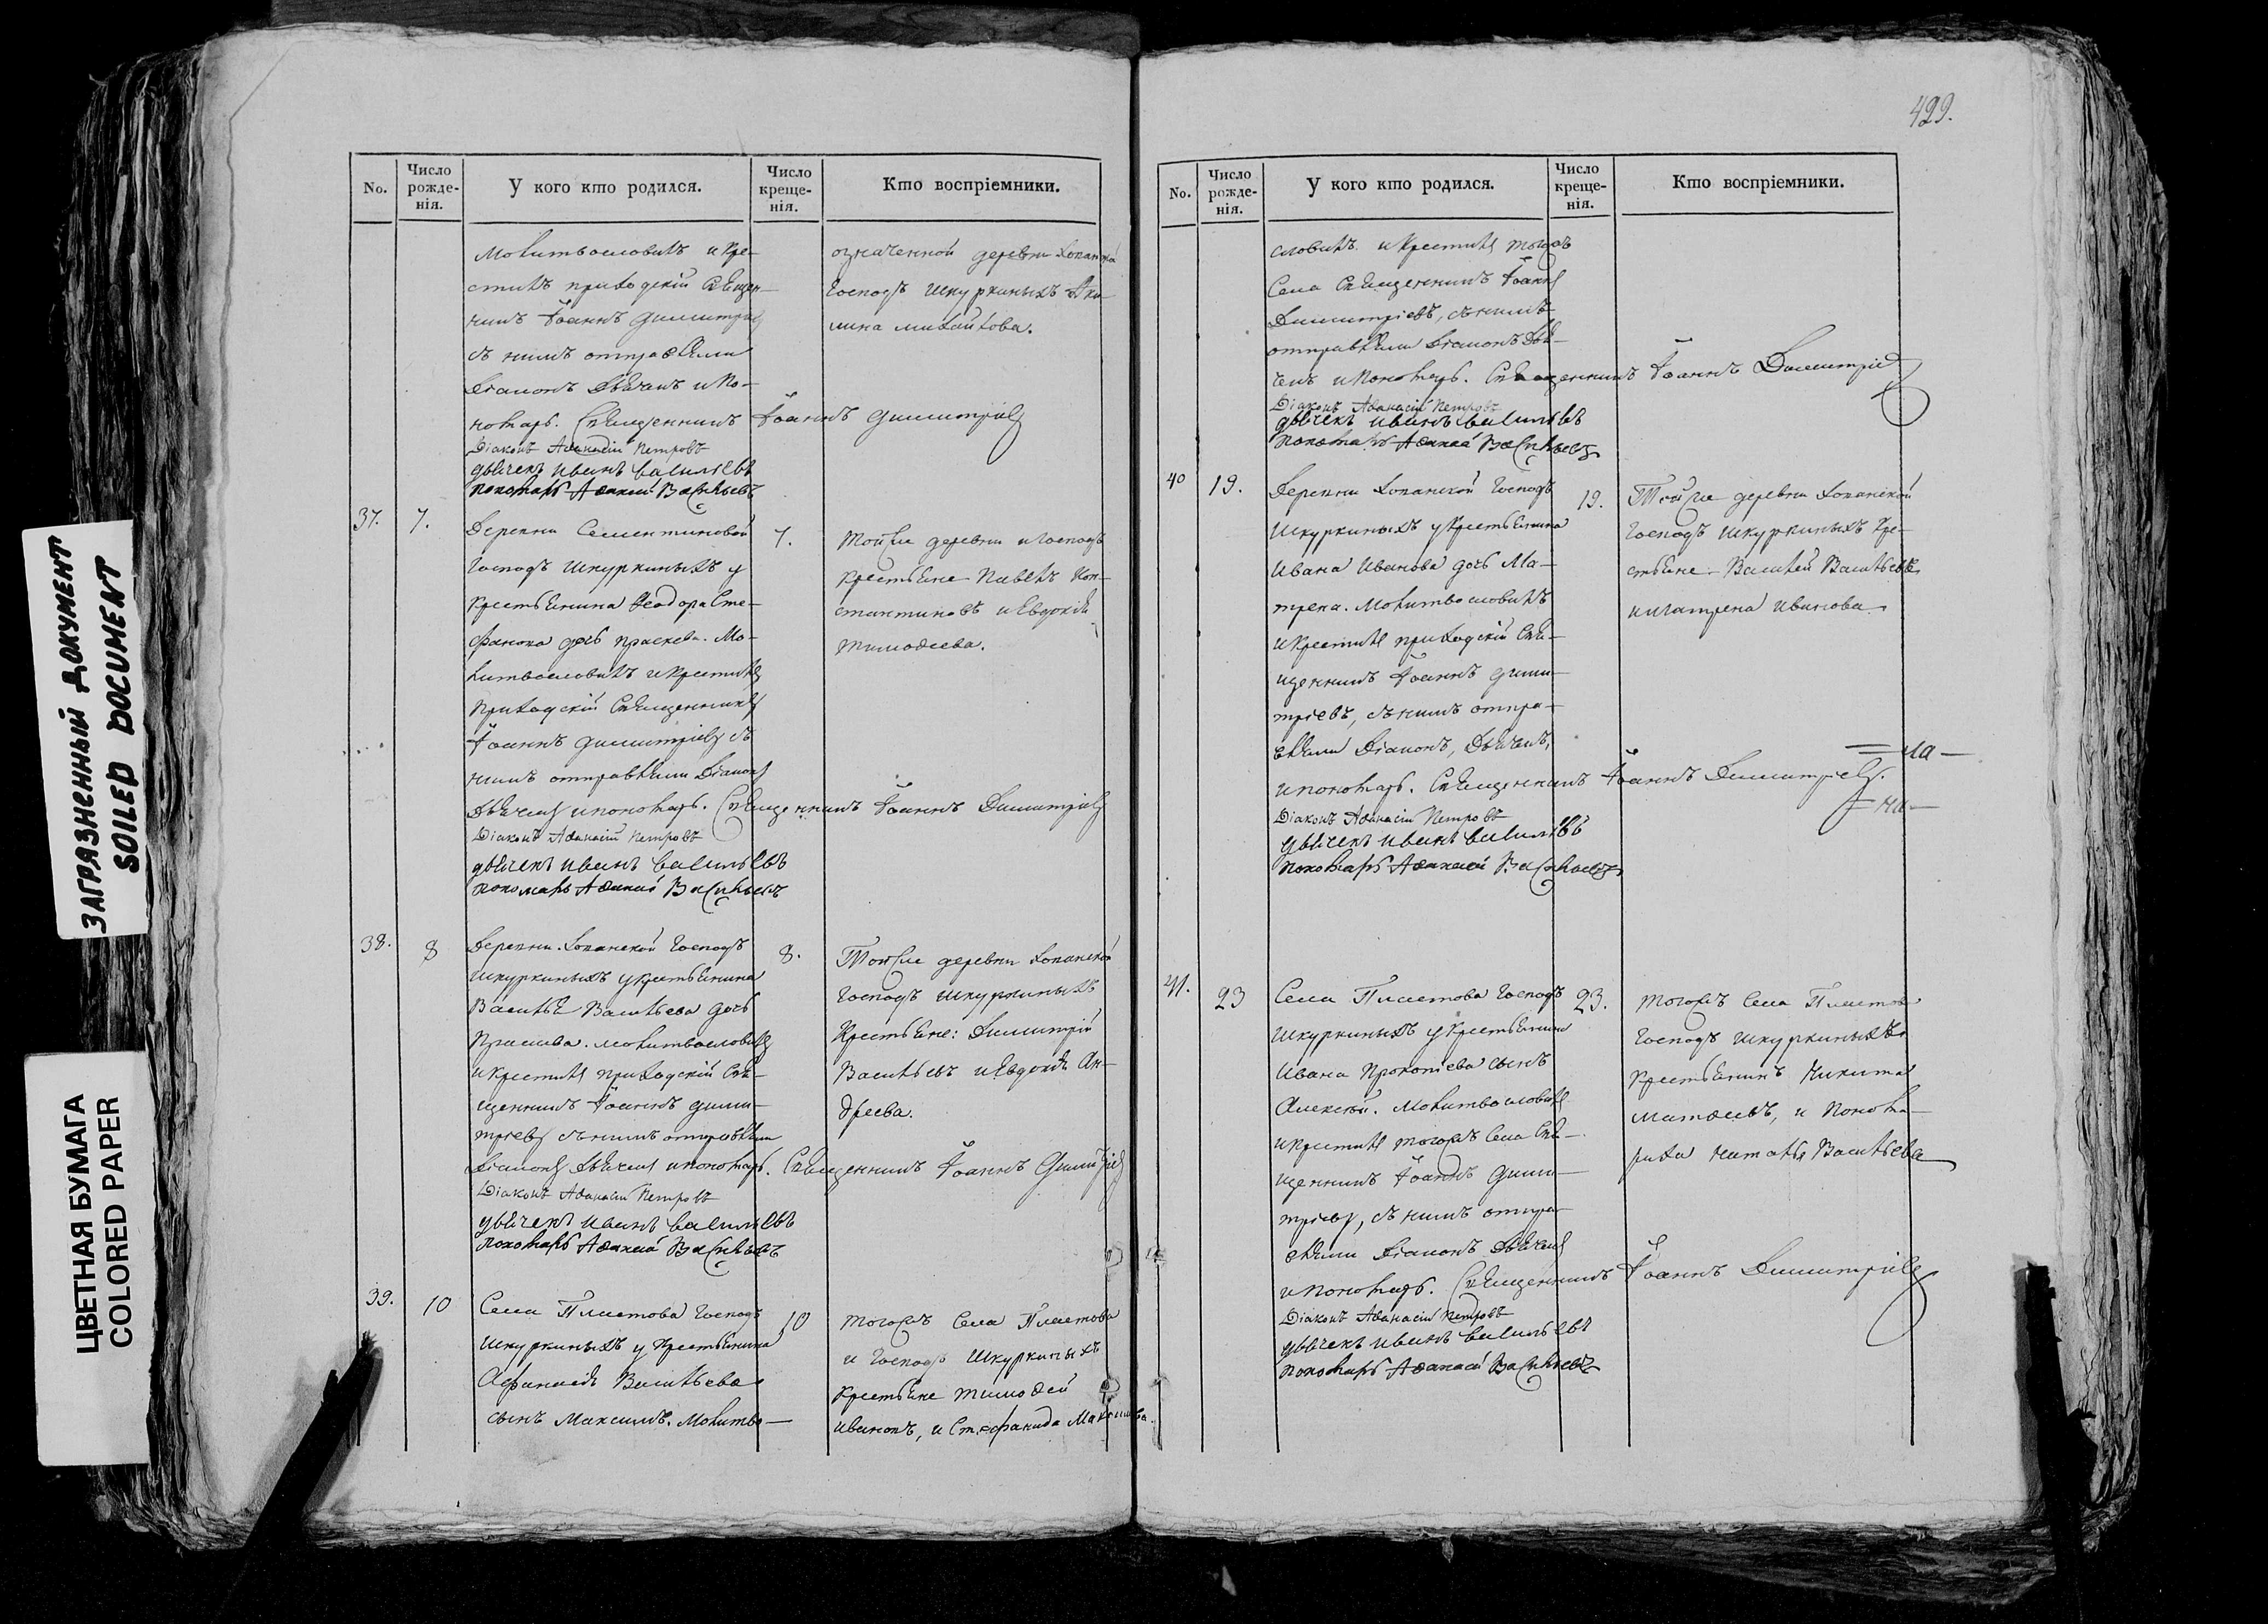 ЗАГРЯЗНЕННЫЙ ДОКУМЕНТ
SOILED DOCUMENT
ЦВЕТНАЯ БУМАГА
COLORED PAPER
No.
Число рожде-нія.
У кого кто родился.
Число креще-нія.
Кто воспріемники.
молитвословилъ и кре-
стилъ приходскій священ-
никъ Іоаннъ Димитріев
съ нимъ отправляли
Діаконъ Дьячекъ и по-
номарь. Священникъ Іоаннъ Димитріевъ
Діаконъ Афанасій Петровъ
дьячекъ Иванъ Васильевъ
пономарь Афанасій Васильевъ
означенной деревни Хопанской
Господъ Шкуркиныхъ Аку-
лина Михайлова.
37. 7.
Деревни Сементиновой
Господъ Шкуркиныхъ у
крестьянина Феодора Сте-
фанова дочь Праскева. Мо-
литвословилъ и крестилъ
приходскій Священникъ
Іоаннъ Димитріевъ съ
нимъ отправляли Діаконъ
Дьячекъ и пономарь. Священникъ Іоаннъ Димитріевъ
Діаконъ Афанасій Петровъ
дьячекъ Иванъ Васильевъ
пономарь Афанасій Васильевъ
7.
Той же деревни и Господъ
крестьяне Павелъ Кон-
стантиновъ и Евдокія
Тимофеева.
38. 8
Деревни Хопанской Господъ
Шкуркиныхъ у крестьянина
Василья Васильева дочь
молитвословилъ
и крестилъ приходскій Свя-
щенникъ Іоаннъ Дими-
тріевъ съ нимъ отправляли
Діаконъ Дьячекъ и пономарь. Священникъ Іоаннъ Димитріевъ
Діаконъ Афанасій Петровъ
дьячекъ Иванъ Васильевъ
пономарь Афанасій Васильевъ
8.
Той же деревни Хопанской
Господъ Шкуркиныхъ
Крестьяне: Димитрій
Васильевъ и Евдокія Ан-
дреева.
39. 10
Села Плиетова Господъ
Шкуркиныхъ у крестьянина
Афанасія Васильева
сынъ Максимъ. Молитво-
10
Того жъ Села Плиетова
и Господъ Шкуркиныхъ
крестьяне Тимофей
Ивановъ, и Стефанида Максимова.
499.
No.
Число рожде-нія.
У кого кто родился.
Число креще-нія.
Кто воспріемники.
словилъ и крестилъ того жъ
Села Священникъ Іоаннъ
Димитріевъ, съ нимъ
отправляли Діаконъ Дья-
чекъ и пономарь. Священникъ Іоаннъ Димитріевъ
Діаконъ Афанасій Петровъ
дьячекъ Иванъ Васильевъ
пономарь Афанасій Васильевъ
40 19.
Деревни Хопанской Господъ
Шкуркиныхъ у крестьянина
Ивана Иванова дочь Ма-
трена. Молитвословилъ
и крестилъ приходскій Свя-
щенникъ Іоаннъ Дими-
тріевъ, съ нимъ отпра-
вляли Діаконъ, Дьячекъ,
и пономарь. Священникъ Іоаннъ Димитріевъ.
Діаконъ Афанасій Петровъ
дьячекъ Иванъ Васильевъ
пономарь Афанасій Васильевъ
19.
Той же деревни Хопанской
Господъ Шкуркиныхъ кре-
стьяне Василей Васильевъ
и Матрена Иванова.
41. 23
Села Плиетова Господъ
Шкуркиныхъ у крестьянина
Ивана Прокопіева сынъ
Алексѣй. Молитвословилъ
и крестилъ того жъ Села Свя-
щенникъ Іоаннъ Дими-
тріевъ, съ нимъ отпра-
вляли Діаконъ Дьячекъ
и пономарь. Священникъ Іоаннъ Димитріевъ
Діаконъ Афанасій Петровъ
дьячекъ Иванъ Васильевъ
пономарь Афанасій Васильевъ
23.
Того жъ Села Плиетова
Господъ Шкуркиныхъ
крестьянинъ Никита
Матфеевъ, и понома-
риха Наталья Васильева